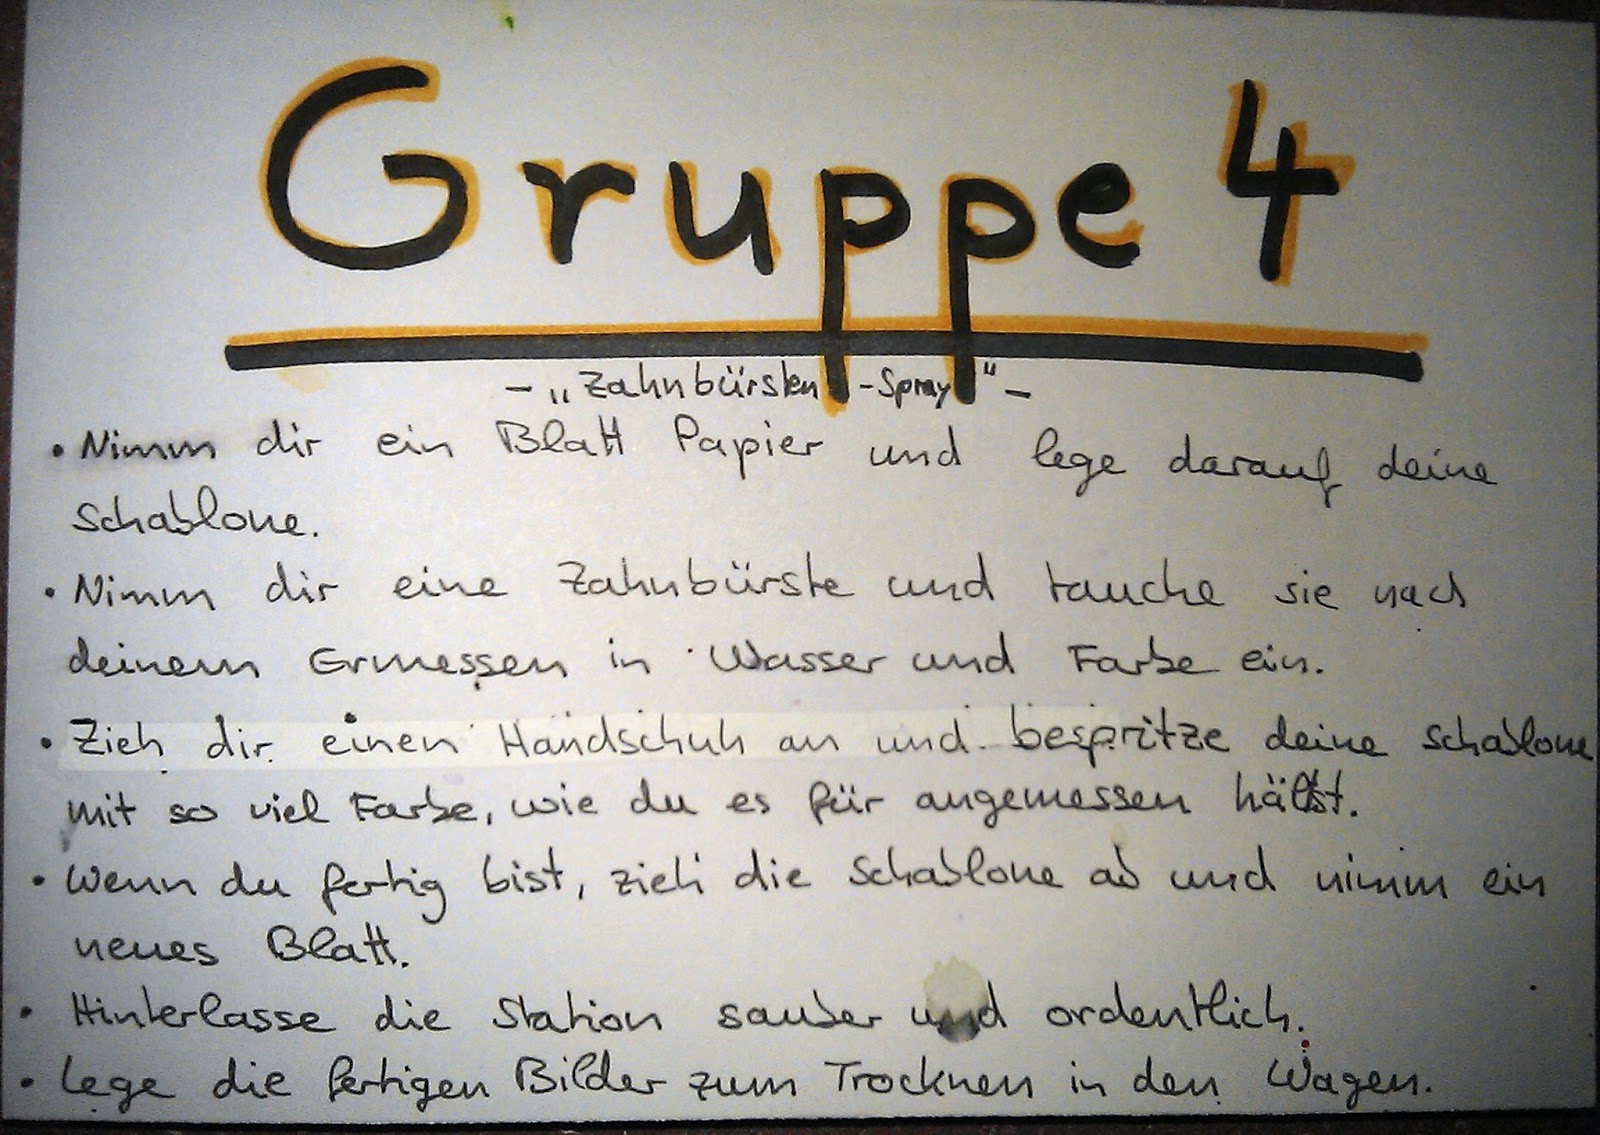 Gruppe 4
- „Zahnbürsten-Spray" -
• Nimm dir ein Blatt Papier und lege darauf deine
Schablone.
• Nimm dir eine Zahnbürste und tauche sie nach
deinem Ermessen in Wasser und Farbe ein.
• Zieh dir einen Handschuh an und bespritze deine Schablone
mit so viel Farbe, wie du es für angemessen hältst.
• Wenn du fertig bist, zieh die Schablone ab und nimm ein
neues Blatt.
• Hinterlasse die Station sauber und ordentlich.
• Lege die fertigen Bilder zum Trocknen in den Wagen.